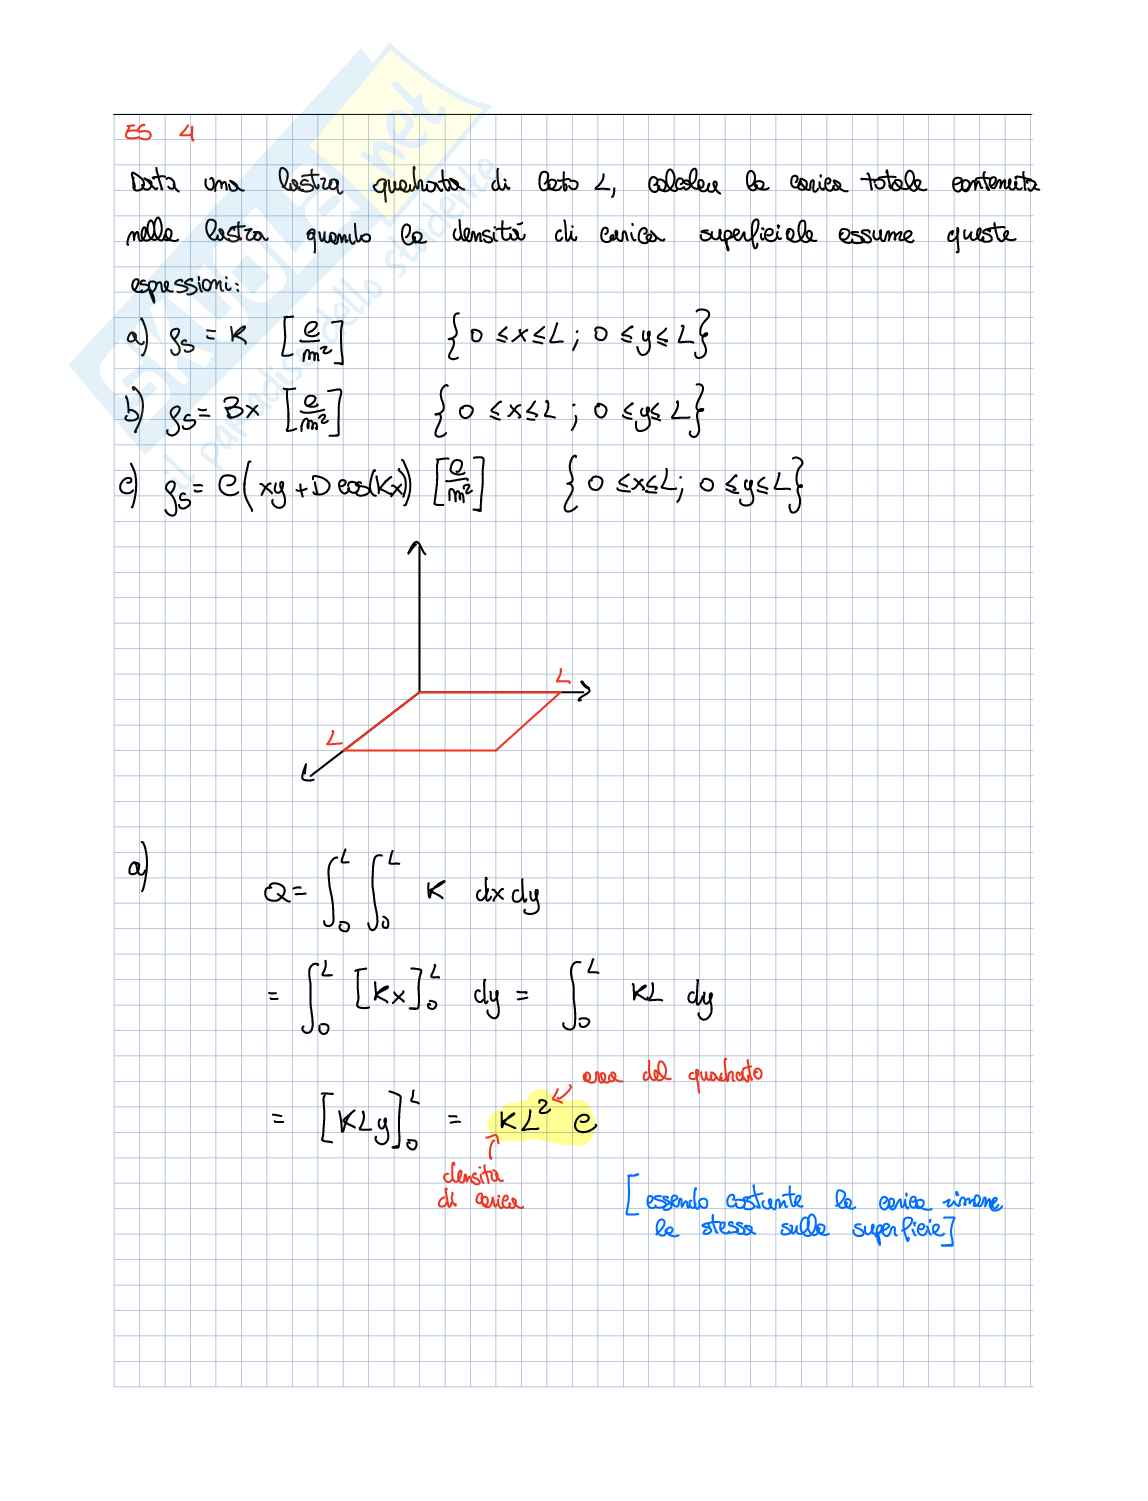 ES 4
Data una lastra quadrata di lato L, calcolare la carica totale contenuta
nella lastra quando la densità di carica superficiale assume queste
espressioni:
a) ρs = K [C/m²] {0 ≤ x ≤ L ; 0 ≤ y ≤ L}
b) ρs = Bx [C/m²] {0 ≤ x ≤ L ; 0 ≤ y ≤ L}
c) ρs = C(xy + D cos(Kx)) [C/m²] {0 ≤ x ≤ L; 0 ≤ y ≤ L}
L
L
a) Q = ∫₀ᴸ ∫₀ᴸ K dx dy
= ∫₀ᴸ [Kx]₀ᴸ dy = ∫₀ᴸ KL dy
area del quadrato
= [KLy]₀ᴸ = KL² C
densita
di carica
[essendo costante la carica rimane
la stessa sulla superficie]
SKUOLA.net
il paradiso dello studente